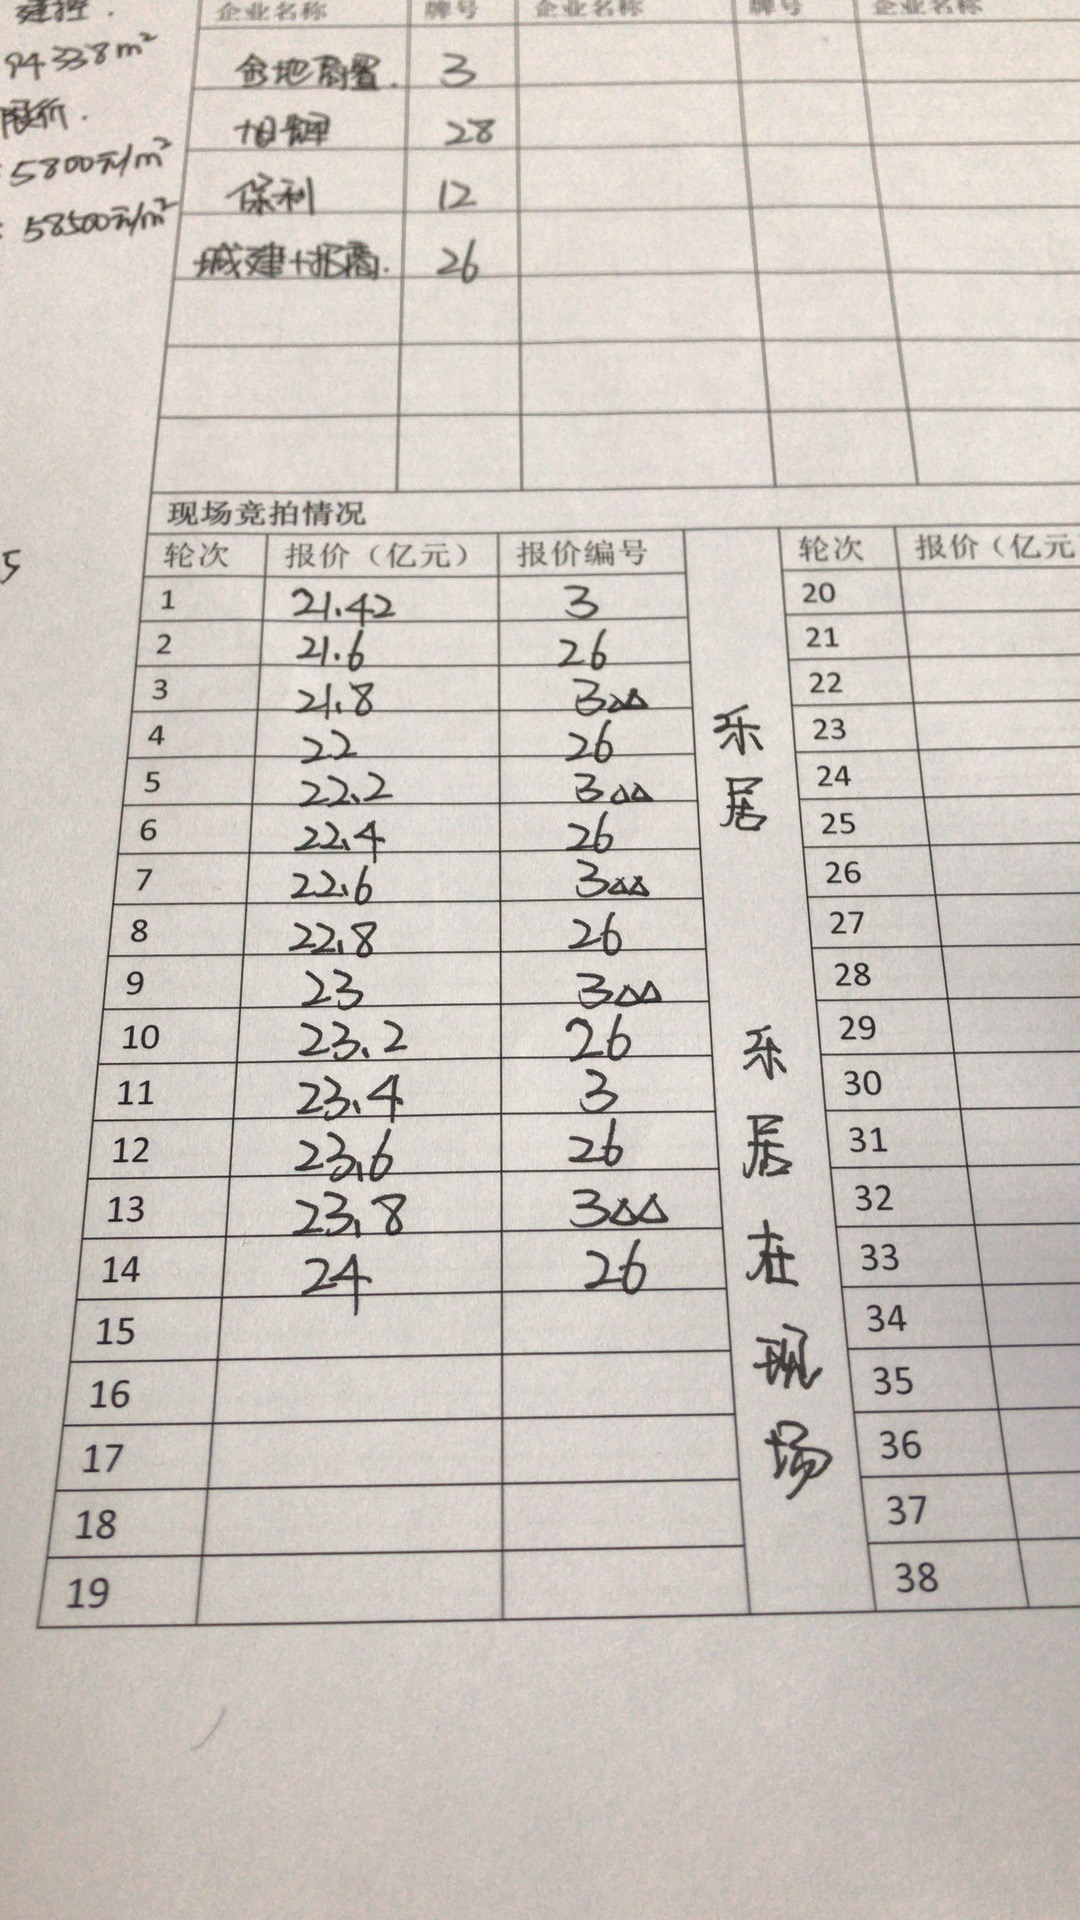 建控.
94338m²
限价.
: 5800元/m²
: 58500元/m²
5
企业名称 牌号 企业名称 牌号 企业名称
金地 3
旭辉 28
保利 12
城建+招商. 26
现场竞拍情况
轮次 报价（亿元） 报价编号 轮次 报价（亿元
1 21.42 3 20
2 21.6 26 21
3 21.8 3△△ 22
4 22 26 23
5 22.2 3△△ 24
6 22.4 26 25
7 22.6 3△△ 26
8 22.8 26 27
9 23 3△△ 28
10 23.2 26 29
11 23.4 3 30
12 23.6 26 31
13 23.8 3△△ 32
14 24 26 33
15 34
16 35
17 36
18 37
19 38
乐居
乐居在现场